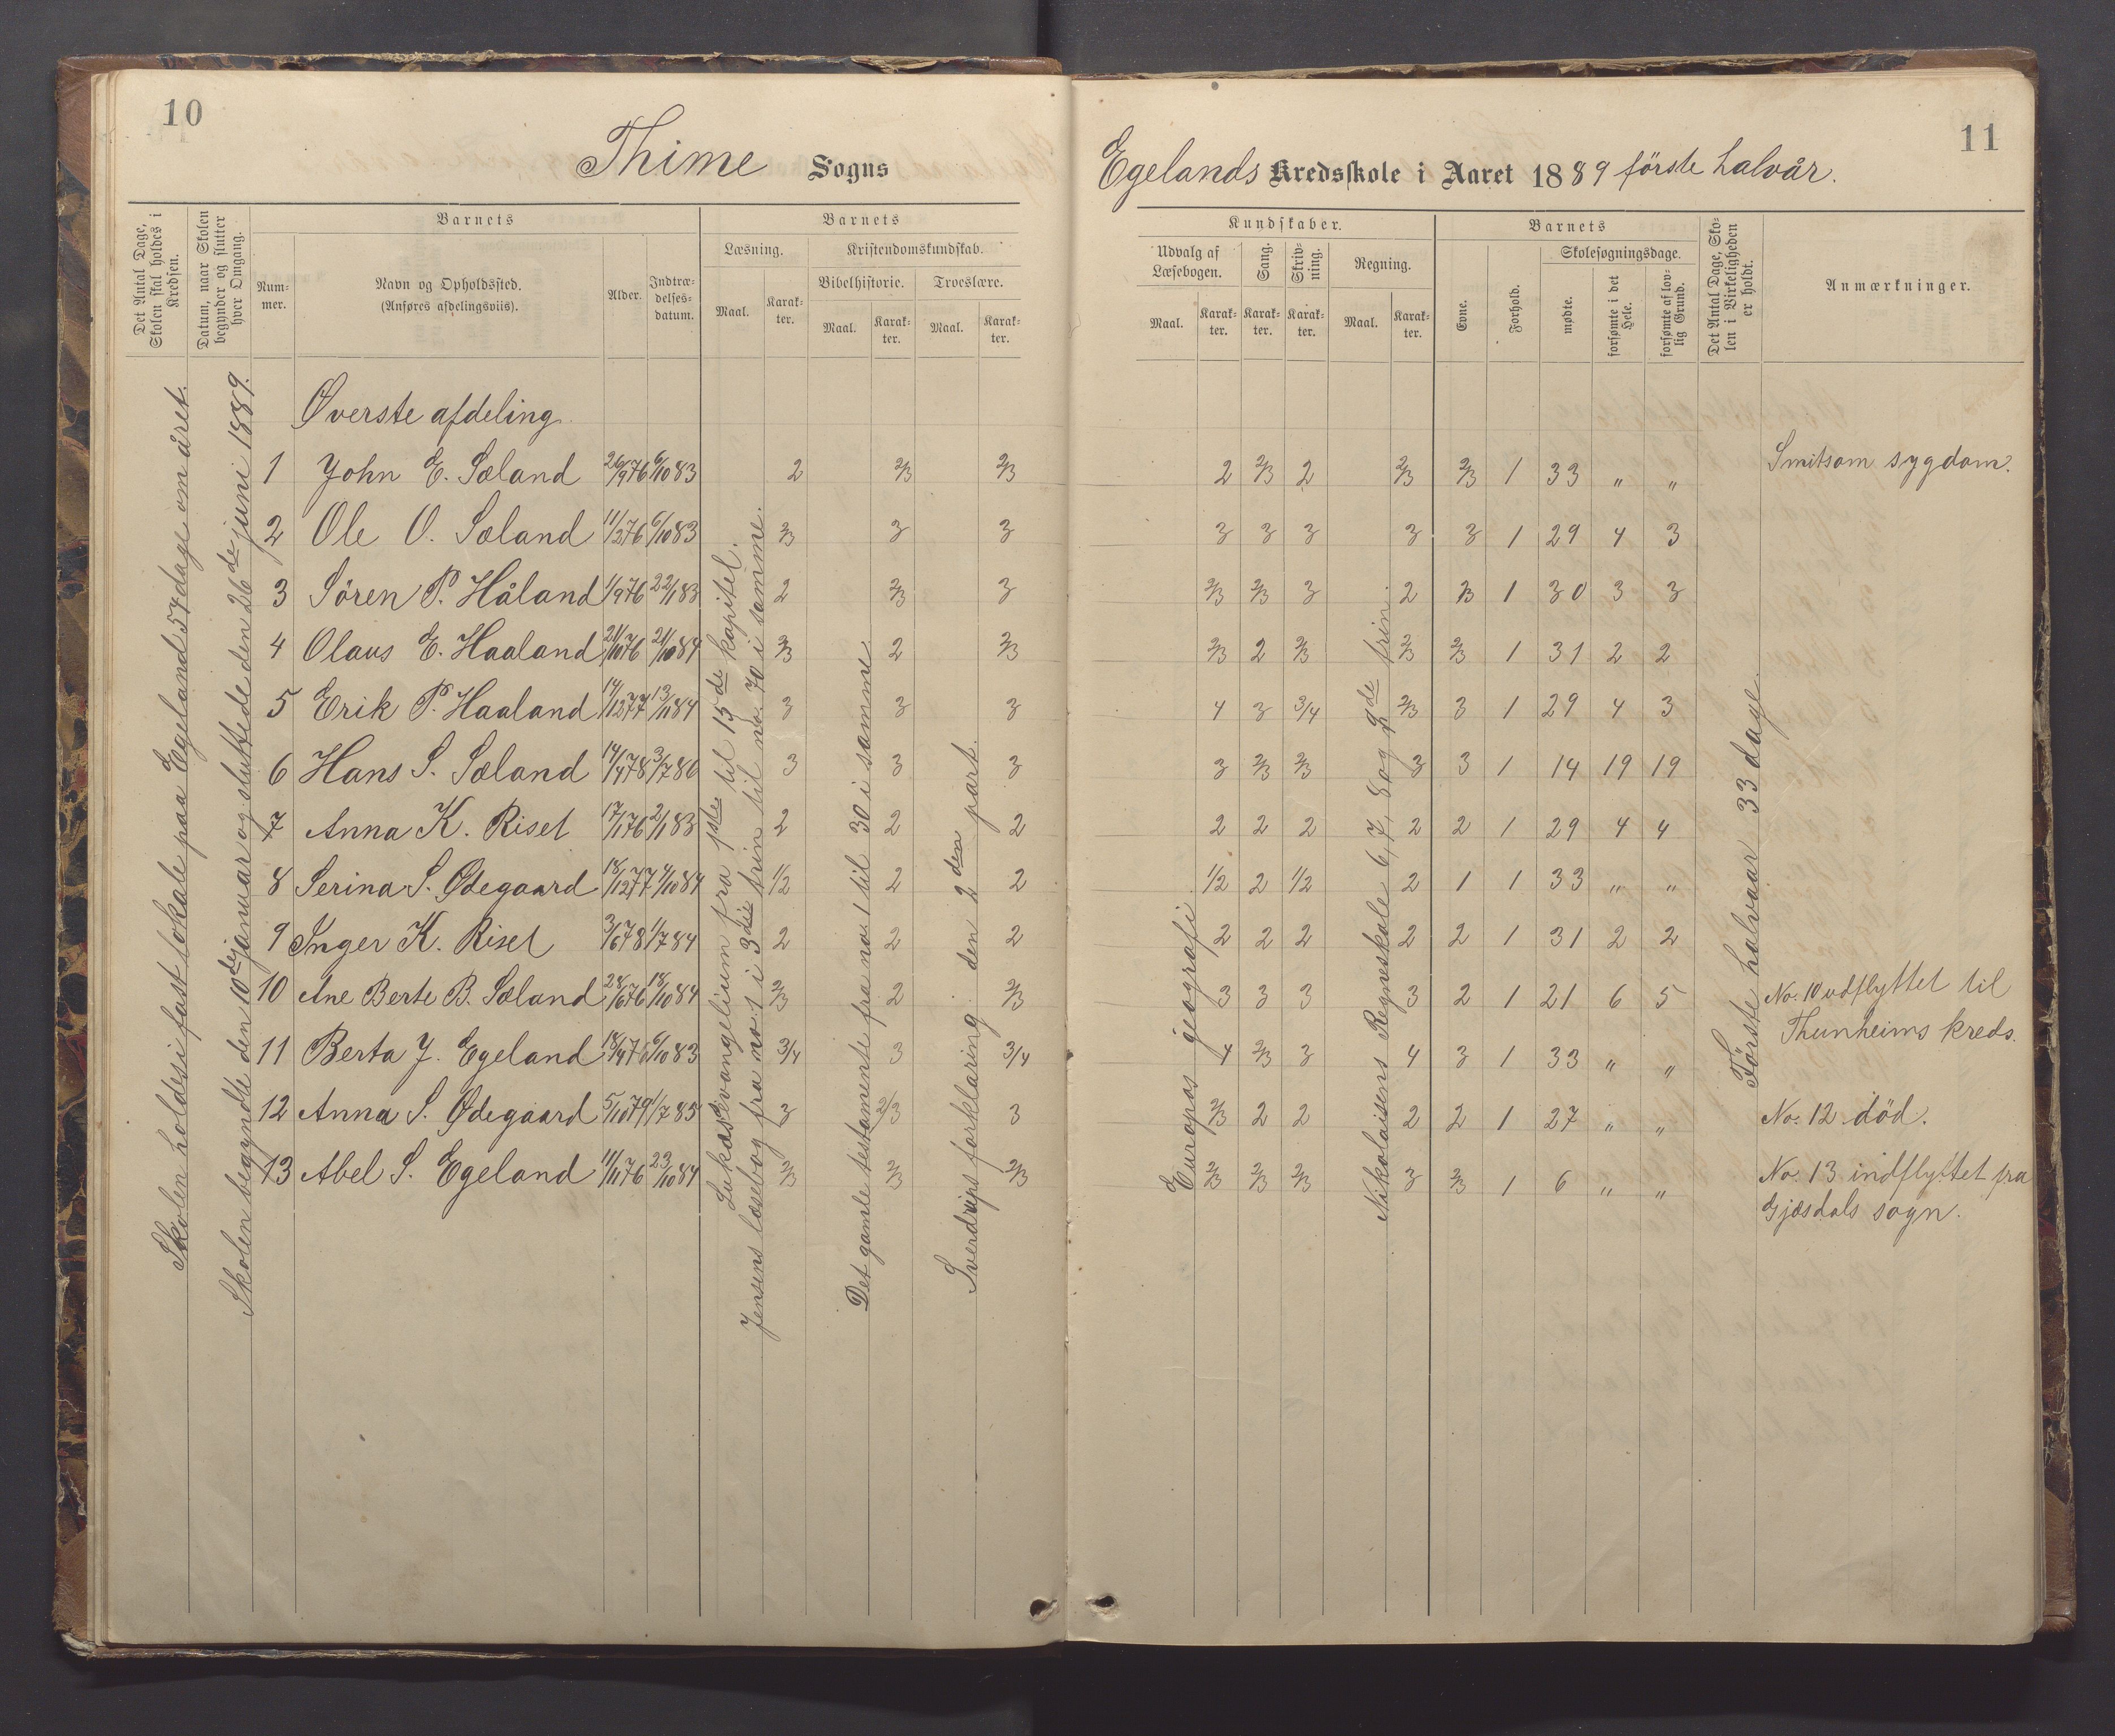 10
Thime Sogns
Det Antal Dage, Skolen skal holdes i Kredsen.
Datum, naar Skolen begynder og slutter hver Omgang.
Barnets
Nummer.
Navn og Opholdssted.
(Anføres afdelingsviis).
Alder.
Indtrædelsesdatum.
Barnets
Læsning.
Kristendomskundskab.
Bibelhistorie.
Troeslære.
Maal.
Karakter.
Maal.
Karakter.
Maal.
Karakter.
Skolen holdes i fast lokale paa Egeland 57 dage om året.
Skolen begyndte den 10de januar og sluttede den 26de juni 1889.
Øverste afdeling
1 John E. Sæland 26/9 76 6/10 83 2 2/3 2/3
2 Ole O. Sæland 11/2 76 6/10 83 2/3 3 3
3 Sören P. Håland 1/9 76 22/1 83 2 2/3 3
4 Olaus E. Haaland 21/10 76 21/10 84 2/3 2 2/3
5 Erik P. Haaland 14/12 77 13/11 84 3 3 3
6 Hans S. Sæland 14/4 78 3/7 86 3 3 3
7 Anna K. Risel 17/1 76 2/1 83 2 2 2
8 Serina S. Ødegaard 18/12 77 4/10 84 1/2 2 2
9 Inger K. Risel 3/6 78 1/7 84 2 2 2
10 Ane Berte B. Sæland 28/6 76 18/10 84 2/3 2 2/3
11 Berta J. Egeland 18/4 76 6/10 83 3/4 3 3/4
12 Anna S. Ødegaard 5/10 79 1/7 85 3 2/3 3
13 Abel S. Egeland 11/11 76 23/10 84 2/3 2/3 2/3
Lukas Evangelium fra 1ste til 15de kapitel.
Jensens læsebog fra no. 1 i 3die trin til no. 70 i samme.
Det gamle testamente fra no. 1 til 30 i samme.
Sverdrups forklaring den 2den part.
11
Egelands Kredsskole i Aaret 1889 förste halvår.
Kundskaber.
Udvalg af Læsebogen.
Sang.
Skrivning.
Regning.
Maal.
Karakter.
Karakter.
Karakter.
Maal.
Karakter.
Barnets
Evne.
Forhold.
Skolesøgningsdage.
mødte.
forsømte i det Hele.
forsømte af lovlig Grund.
Det Antal Dage, Skolen i Virkeligheden er holdt.
Anmærkninger.
2 2/3 2 2/3 2/3 1 33 " " Smitsom sygdom.
3 3 3 3 3 1 29 4 3
2/3 2/3 3 2 2/3 1 30 3 3
2/3 2 2/3 2/3 2/3 1 31 2 2
4 3 3/4 2/3 3 1 29 4 3
3 2/3 2/3 3 3 1 14 19 19
2 2 2 2 2 1 29 4 4
1/2 2 1/2 2 1 1 33 " "
2 2 2 2 2 1 31 2 2
3 3 3 3 2 1 21 6 5 No. 10 udflyttet til
Thunheims kreds.
4 2/3 3 4 3 1 33 " "
2/3 2 2 2 2 1 27 " " No. 12 död.
2/3 2/3 2/3 3 2/3 1 6 " " No. 13 indflyttet fra
Gjæsdals sogn.
Europas geografi
Nikolaisens Regneskole 6, 7, 8 og 9de trin.
Förste halvaar 33 dage.